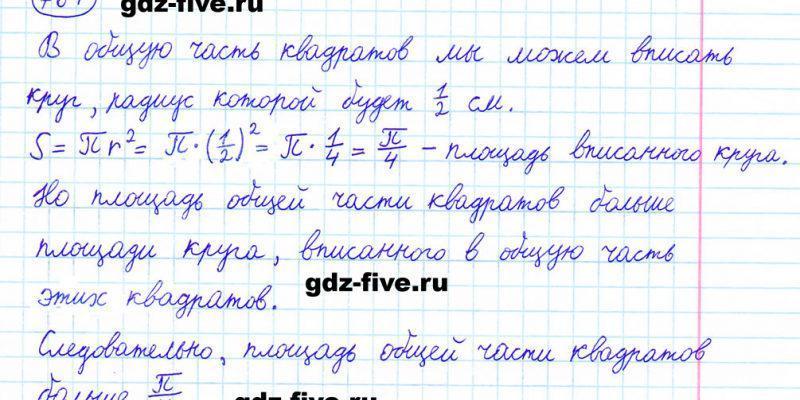 gdz-five.ru
В общую часть квадратов мы можем вписать
круг, радиус которой будет 1/2 см.
S = πr² = π · (1/2)² = π · 1/4 = π/4 – площадь вписанного круга.
Но площадь общей части квадратов больше
площади круга, вписанного в общую часть
gdz-five.ru
этих квадратов.
Следовательно, площадь общей части квадратов
больше π
gdz-five.ru